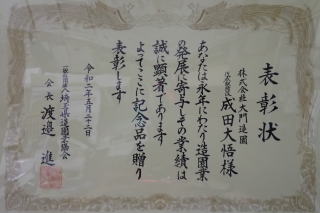 表彰状
株式会社大門造園
代表取締役 成田大悟様
あなたは永年にわたり造園業
の発展に寄与しその業績は
誠に顕著であります
よってここに記念品を贈り
表彰します
令和二年五月二十二日
一般社団法人埼玉県造園業協会
会長 渡邉 進